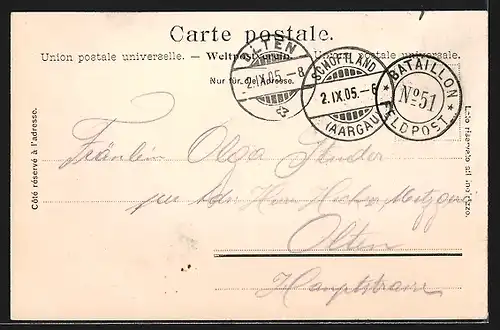 Carte postale.
Union postale universelle. — Weltpostverein. — Unione postale universale.
Nur für die Adresse.
OLTEN
2.IX.05.–8
SCHÖFTLAND
2.IX.05.–6
(AARGAU)
BATAILLON
No 51
FELDPOST
Côté réservé à l'adresse.
Lato riservato all'indirizzo.
Fräulein Olga Studer
Herrn Metzger
Olten
Hauptstrasse